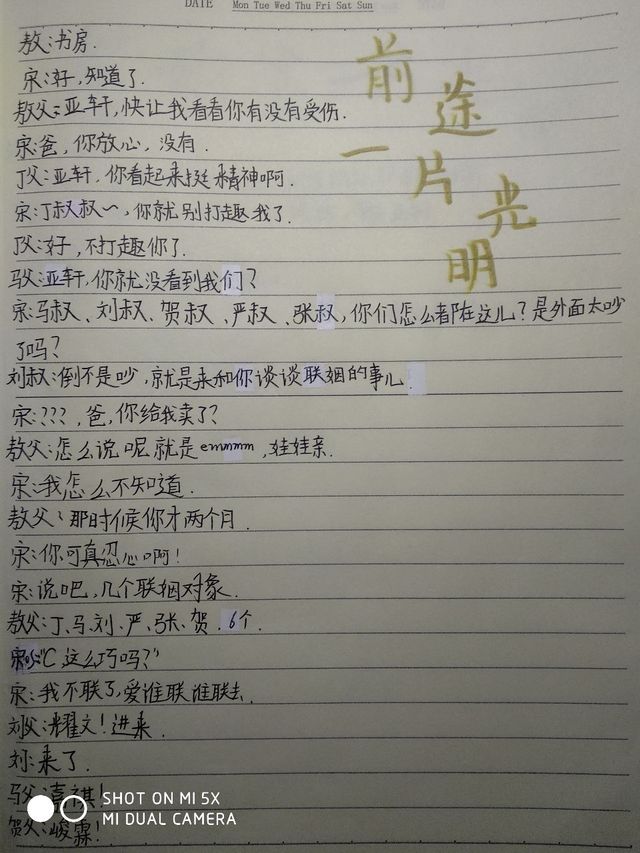 DATE Mon Tue Wed Thu Fri Sat Sun
前途一片光明
敖:书房.
宋:好,知道了.
敖父:亚轩,快让我看看你有没有受伤.
宋:爸,你放心,没有.
丁父:亚轩,你看起来挺精神啊.
宋:丁叔叔~,你就别打趣我了.
丁父:好,不打趣你了.
马父:亚轩,你就没看到我们?
宋:马叔、刘叔、贺叔、严叔、张叔,你们怎么都在这儿?是外面太吵
了吗?
刘叔:倒不是吵,就是来和你谈谈联姻的事儿.
宋:???,爸,你给我卖了?
敖父:怎么说呢就是emmmm,娃娃亲.
宋:我怎么不知道.
敖父:那时候你才两个月.
宋:你可真忍心啊!
宋:说吧,几个联姻对象.
敖父:丁、马、刘、严、张、贺.6个.
宋心"C这么巧吗?"
宋:我不联了,爱谁联谁联去.
刘父:耀文!进来.
刘:来了.
马父:嘉祺!
贺父:峻霖!
SHOT ON MI 5X
MI DUAL CAMERA